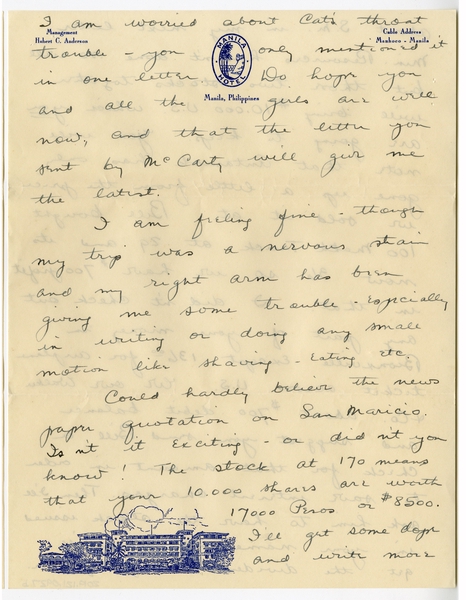 I am worried about Cat's throat
Management
Hubert G. Anderson
Cable Address
Manhoco - Manila
trouble you only mentioned it
MANILA HOTEL
in one letter. Do hope you
and all the girls are well
Manila, Philippines
now, and that the letter you
sent by McCarty will give me
the latest.
I am feeling fine - though
my trip was a nervous stain
and my right arm has been
giving me some trouble - Especially
in writing or doing any small
motion like shaving - Eating etc.
Could hardly believe the news
paper quotation on San Maricio.
Isn't it Exciting - or didn't you
know! The stock at 170 means
that your 10.000 shares are worth
17000 Pesos or $8500.
I'll get some dope
and write more